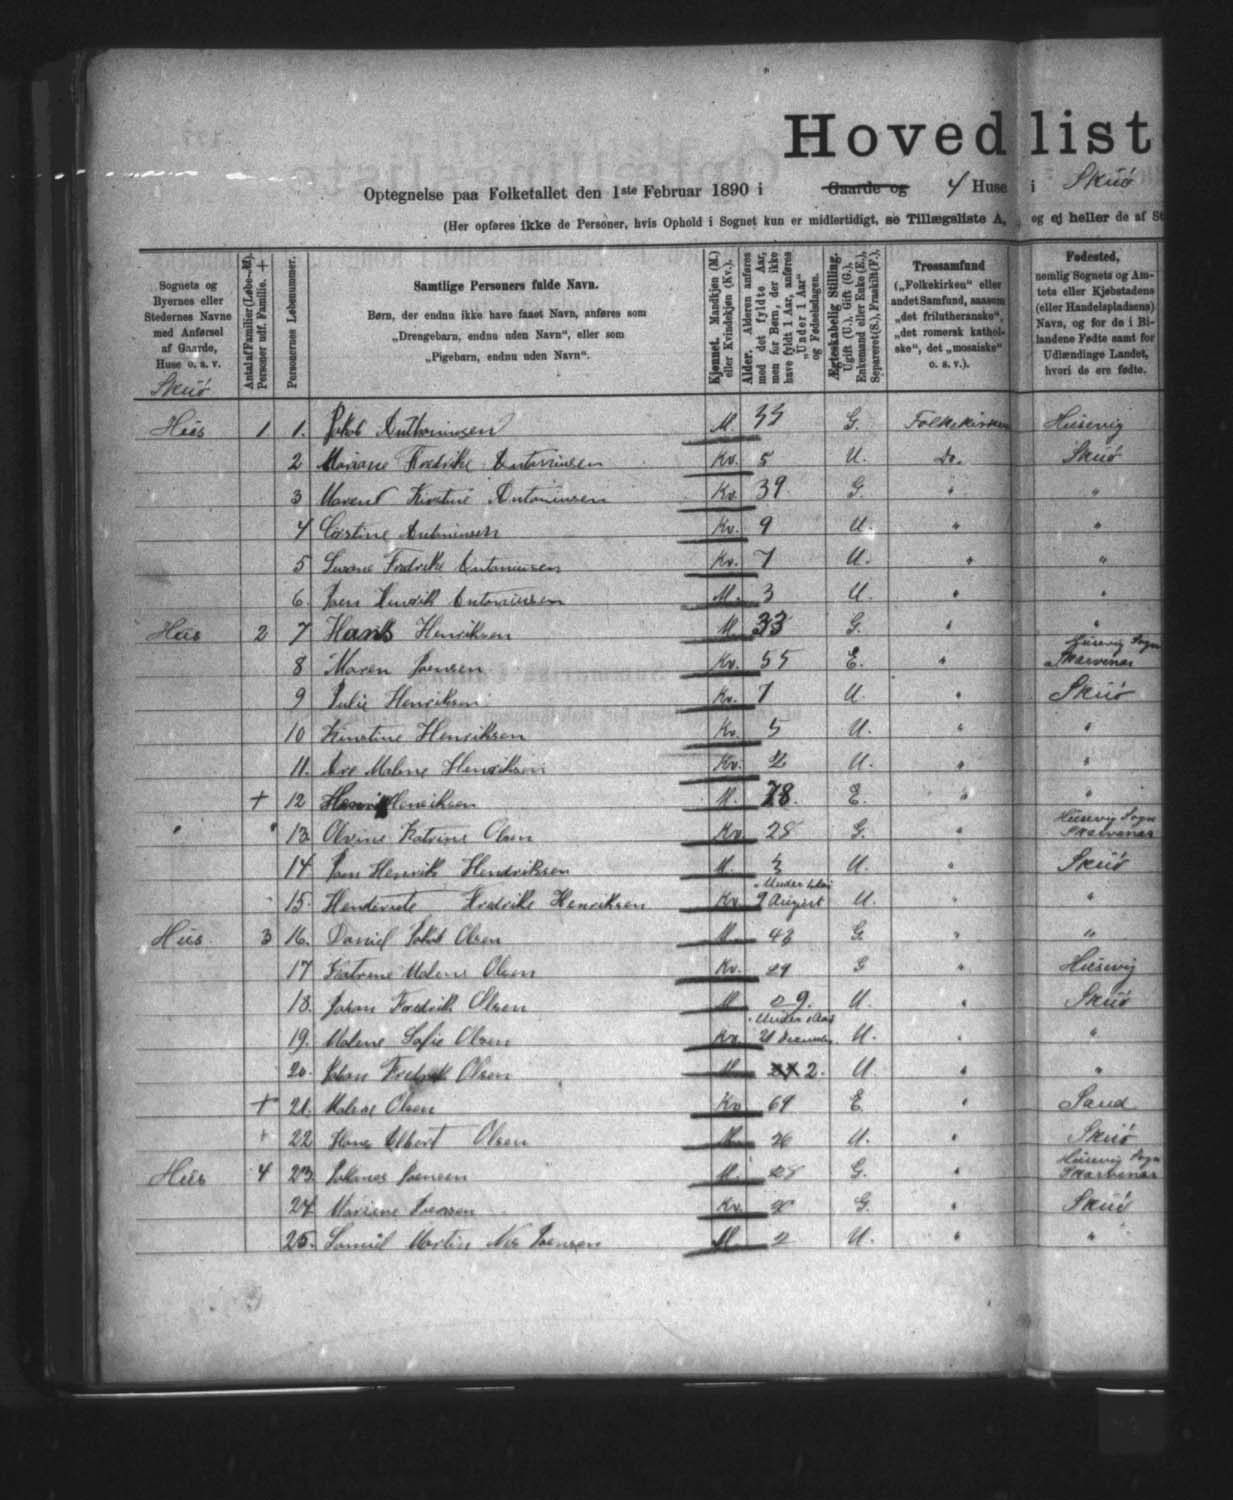 Hovedliste
Optegnelse paa Folketallet den 1ste Februar 1890 i Gaarde og 4 Huse i Skuö
(Her opføres ikke de Personer, hvis Ophold i Sognet kun er midlertidigt, se Tillægsliste A, og ej heller de af St
Sognets og Byernes eller Stedernes Navne med Anførsel af Gaarde, Huse o. s. v.
Antal af Familier (Løbe-№). Personer udf. Familie. +
Personernes Løbenummer.
Samtlige Personers fulde Navn.
Børn, der endnu ikke have faaet Navn, anføres som „Drengebarn, endnu uden Navn“, eller som „Pigebarn, endnu uden Navn“.
Kjønnet. Mandkjøn (M.) eller Kvindekjøn (Kv.).
Alder. Alderen anføres med det fyldte Aar, men for Børn, der ikke have fyldt 1 Aar, anføres „Under 1 Aar“ og Fødselsdagen.
Ægteskabelig Stilling. Ugift (U.), Gift (G.), Enkemand eller Enke (E.), Separeret (S.), Fraskilt (F.).
Trossamfund („Folkekirken“ eller andet Samfund, saasom „det frilutheranske“, „det romersk katholske“, det „mosaiske“ o. s. v.).
Fødested, nemlig Sognets og Amtets eller Kjøbstadens (eller Handelspladsens) Navn, og for de i Bilandene Fødte samt for Udlændinge Landet, hvori de ere fødte.
Skuö
Huus 1 1. Jakob Anthoniusen M. 33 G. Folkekirken Husevig
2 Mariane Fredrike Antoniusen Kv. 5 U. Do. Skuö
3 Maren Kirstine Antoniusen Kv. 39 G. " "
4 Cristine Antoniusen Kv. 9 U. " "
5 Susane Fredrike Antoniusen Kv. 7 U. " "
6. Joen Henrik Antoniusen M. 3 U. " "
Huus 2 7 Hans Henriksen M. 33 G. " "
8 Maren Joensen Kv. 55 E. " Husevig Sogn Skarvenæs
9 Julie Henriksen Kv. 7 U. " Skuö
10 Kirstine Henriksen Kv. 5 U. " "
11. Malene Henriksen Kv. 2 U. " "
+ 12 Henrik Henriksen M. 78. E. " "
" " 13 Olvine Katrine Olsen Kv. 28 G. " Husevig Sogn Skarvenæs
14 Joen Henrik Hendriksen M. 3 U. " Skuö
15. Fredrike Henriksen Kv. Under 1 Aar 9 August U. " "
Huus 3 16. Daniel Jakob Olsen M. 43 G. " "
17 Katrine Malene Olsen Kv. 29 G " Husevig
18. Johan Fredrik Olsen M 9. U. " Skuö
19. Malene Sofie Olsen Kv. Under 1 Aar 21 December U. " "
20. Johan Fredrik Olsen M 2. U. " "
+ 21. Malene Olsen Kv. 69 E " Sand
+ 22 Hans Albert Olsen M 26 U. " Skuö
Huus 4 23. Johannes Joensen M. 28 G. " Husevig Sogn Skarvenæs
24. Mariane Joensen Kv. G. " Skuö
25. Samuel Martin Joensen M 2 U. " "